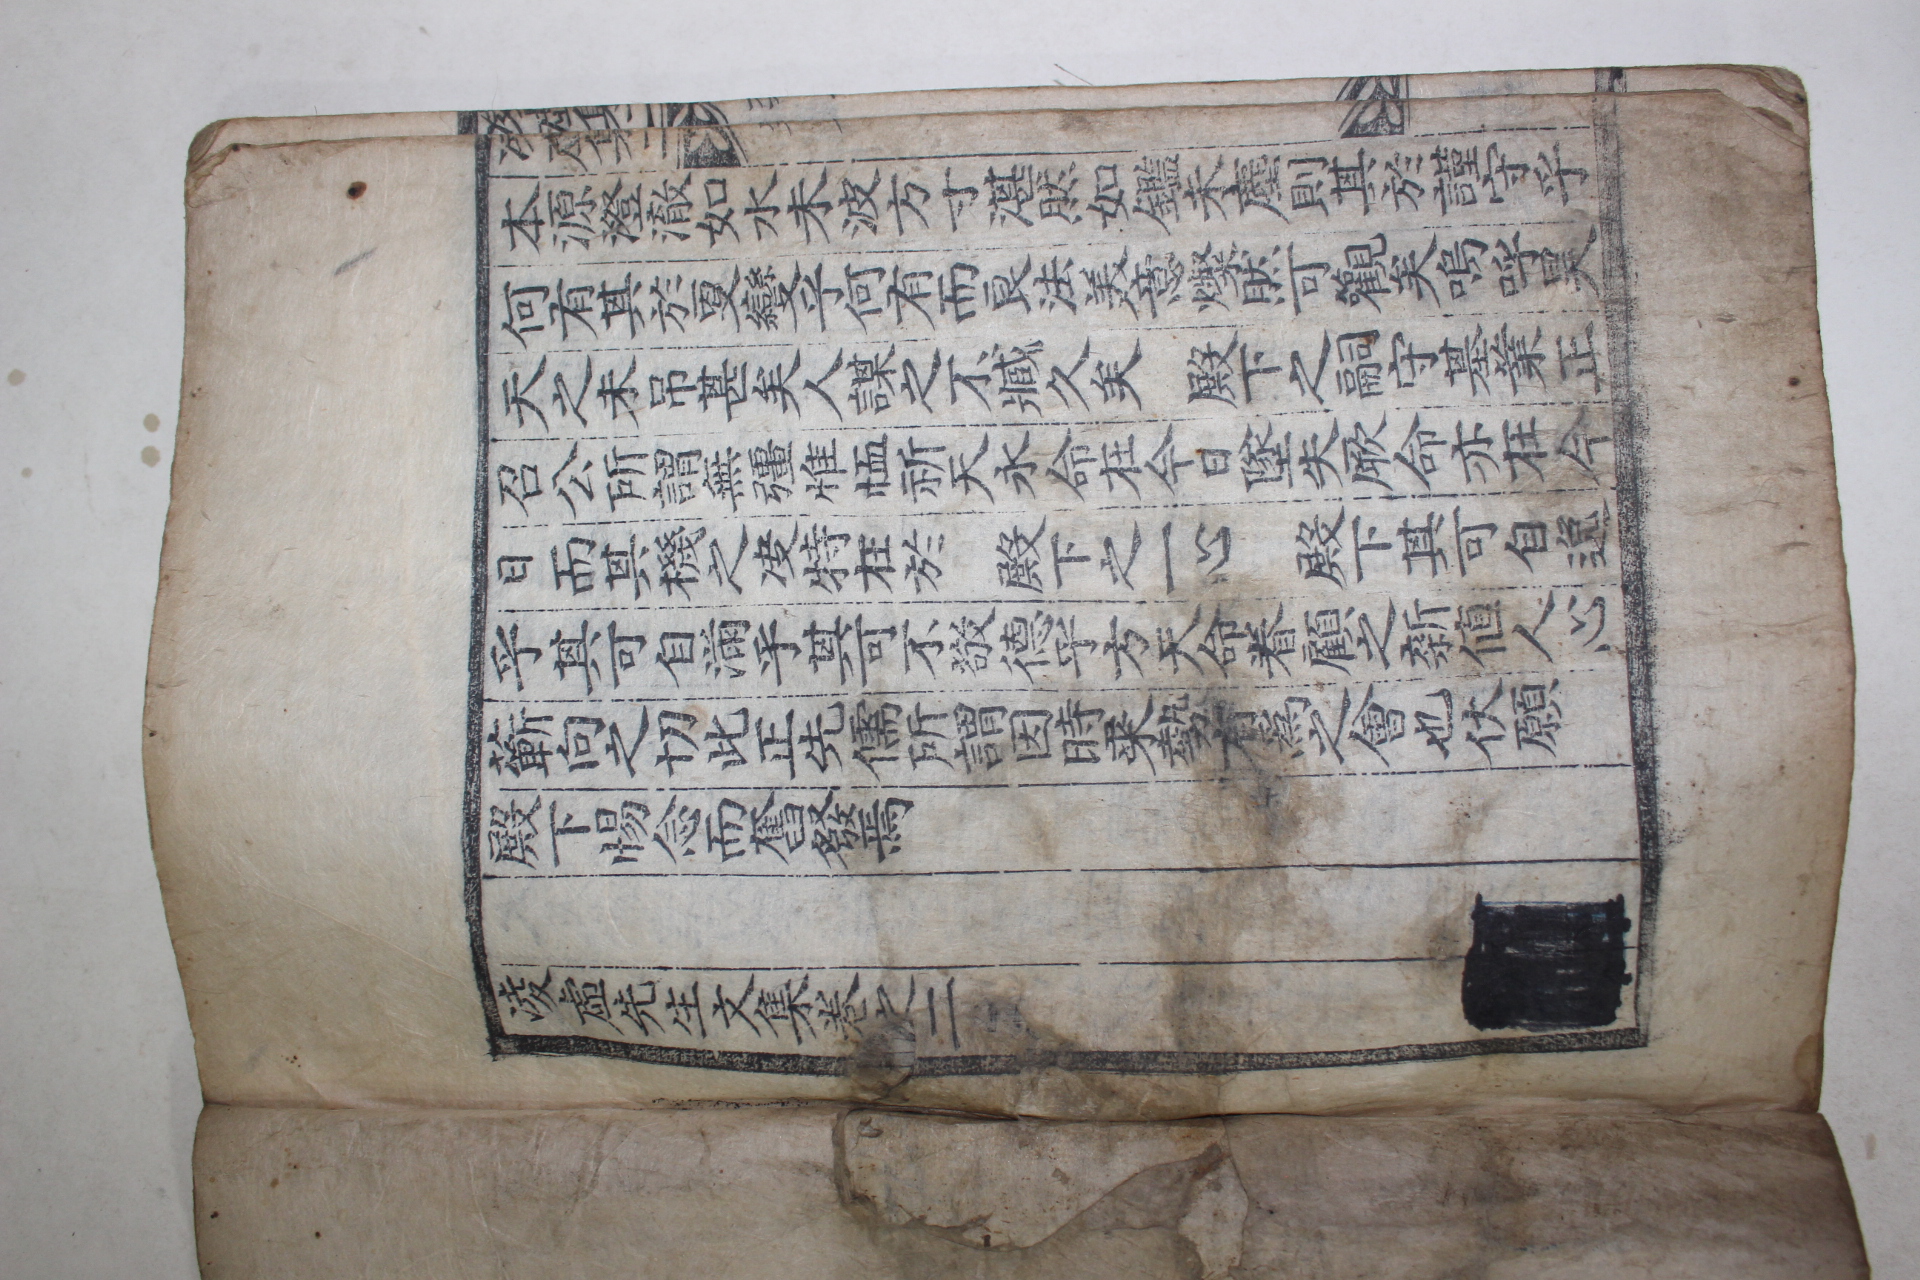 本源澄澈如水未波方寸湛然如鑑未塵則其於謹守乎
何有其於更變乎何有而良法美意燦然可觀矣嗚呼昊
天之未吊甚矣人謀之不臧久矣 殿下之嗣守基業正
召公所謂無彊惟恤祈天永命在今日墜失厥命亦在今
日而其機之决特在於 殿下之一心 殿下其可自逸
乎其可自滿乎其可不敬德乎方天命眷顧之新値人心
蘄向之切此正先儒所謂因時乘勢有爲之會也伏願
殿下惕念而奮發焉
凌虛先生文集卷之二